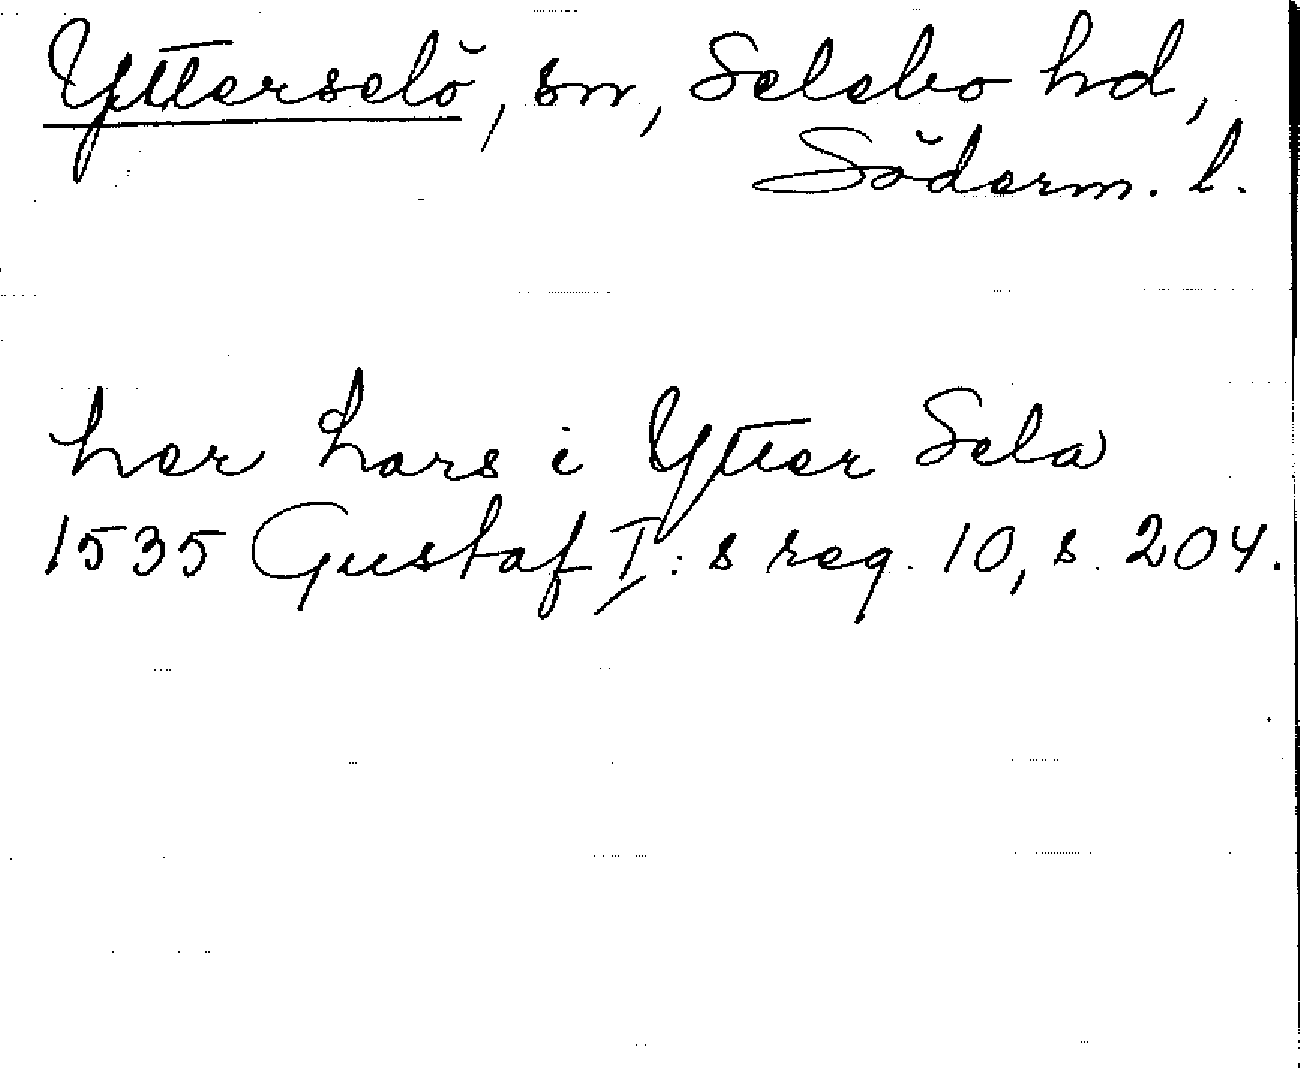 Ytterselö, sn, Selebo hd,
Söderm. l.
her Lars i Ytter Sela
1535 Gustaf I:s reg. 10, s. 204.